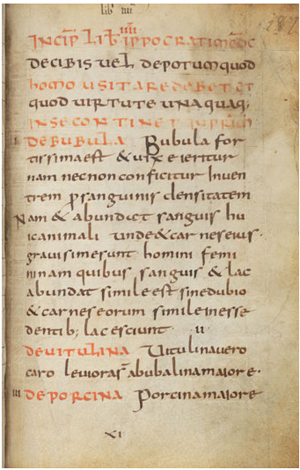 lib IIII
INCIP LIB IIII YPPOCRATI MEDC
DECIBIS UEL DEPOTUM QUOD
HOMO USITARE DEBET ET
QUOD UIRTUTE UNAQUAQ;
IN SE CONTINET IN PRIMU
I DE BUBULA Bubula for
tissima est & uix e ieritur
nam nec non conficitur In uen
trem p sanguinis densitatem
Nam & abundat sanguis hu
ic animali unde & carnes eius.
grauissime sunt homini femi
ninam quibus sanguis & lac
abundat simile est sine dubio
& carnes eorum simile in esse
dentib; lac esciunt II
DE UITULINA Uitulina uero
caro leuior a bubalina maiore.
III DE PORCINA Porcina maiore
XI